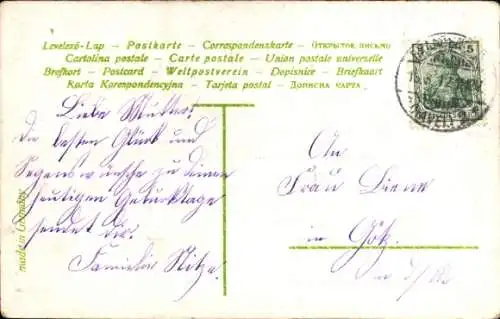 Levelező-Lap – Postkarte – Correspondenzkarte – Открытое письмо
Cartolina postale – Carte postale – Union postale universelle
Brefkort – Postcard – Weltpostverein – Dopisnice – Briefkaart
Karta Korespondencyjna – Tarjeta postal – Дописна карта
5
Liebe Mutter!
Die besten Glück und
Segenswünsche zu Deinem
heutigen Geburtstage
sendet dir
Familie Nitze
An
Frau Biene
in Götz
made in Germany